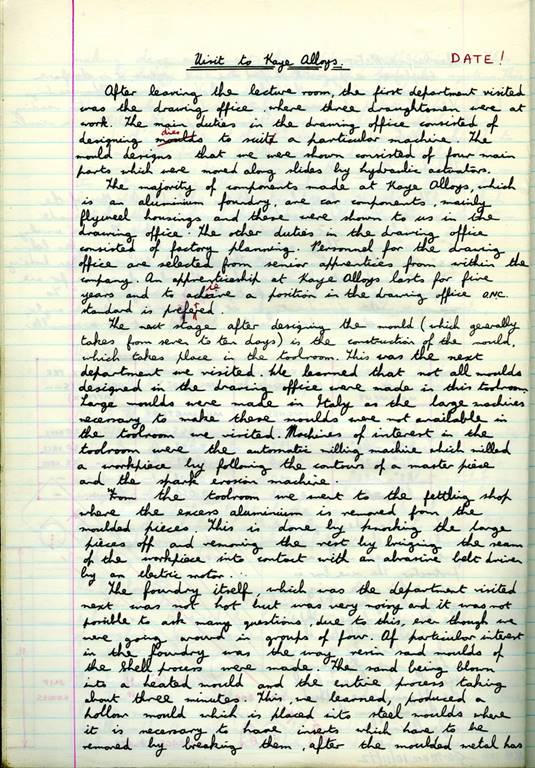 Visit to Kaye Alloys.
DATE!
After leaving the lecture room, the first department visited
was the drawing office where three draughtsmen were at
work. The main duties in the drawing office consisted of
dies
designing moulds to suit a particular machine. The
mould designs that we were shown consisted of four main
parts which were moved along slides by hydraulic actuators.
The majority of components made at Kaye Alloys, which
is an aluminium foundry, are car components, mainly
flyweel housings and these were shown to us in the
drawing office. The other duties in the drawing office
consisted of factory planning. Personnel for the drawing
office are selected from senior apprentices from within the
company. An apprenticeship at Kaye Alloys lasts for five
years and to a position in the drawing office ONC.
standard is
The next stage after designing the mould (which generally
takes from seven to ten days) is the construction of the mould,
which takes place in the toolroom. This was the next
department we visited. We learned that not all moulds
designed in the drawing office were made in this toolroom.
Large moulds were made in Italy as the large machines
necessary to make these moulds were not available in
the toolroom we visited. Machines of interest in the
toolroom were the automatic milling machine which milled
a workpiece by following the contours of a master piese
and the spark erosion machine.
From the toolroom we went to the fettling shop
where the excess aluminium is removed from the
moulded pieces. This is done by knocking the large
pieces off and removing the rest by bringing the seam
of the workpiece into contact with an abrasive belt driven
by an electric motor...
The foundry itself, which was the department visited
next was not hot but was very noisy and it was not
possible to ask many questions, due to this, even though we
were going around in groups of four. Of particular interest
in the foundry was the way resin sand moulds of
the Shell process were made. The sand being blown
into a heated mould and the entire process taking
about three minutes. This we learned, produced a
hollow mould which is placed into steel moulds where
it is necessary to have insets which have to be
removed by breaking them, after the moulded metal has